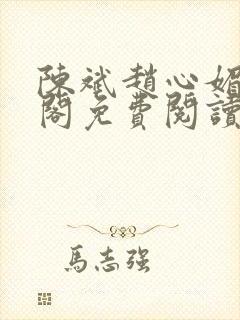 陳斌趙心媚
閣免費閱讀
馬志強